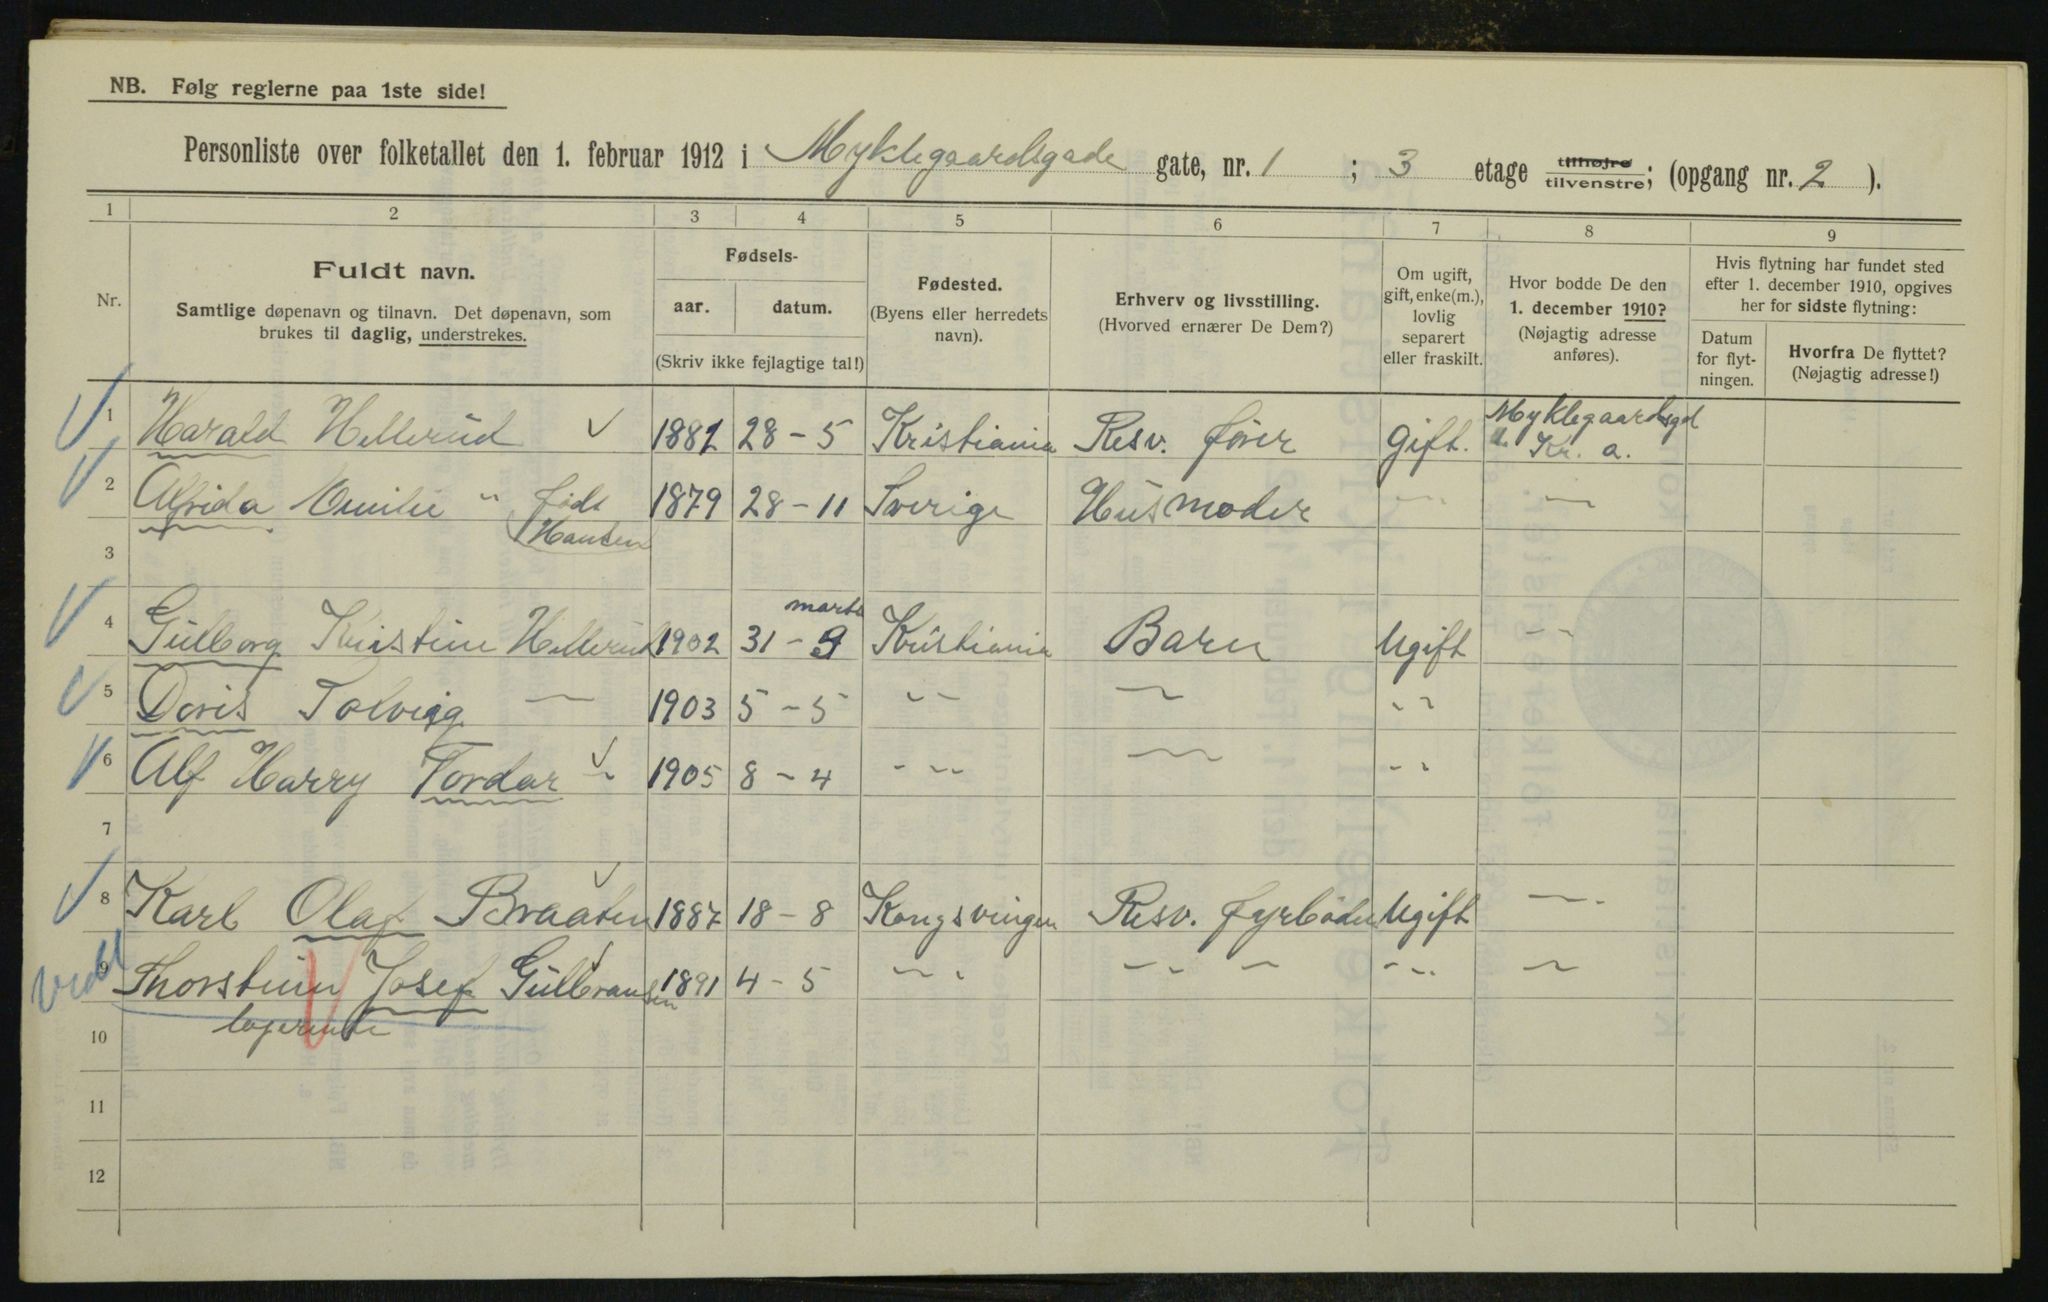 NB. Følg reglerne paa 1ste side!
Personliste over folketallet den 1. februar 1912 i Myklegaardsgade gate, nr. 1 ; 3 etage tilhøjre tilvenstre; (opgang nr. 2 ).
1 2 3 4 5 6 7 8 9
Nr.
Fuldt navn.
Samtlige døpenavn og tilnavn. Det døpenavn, som
brukes til daglig, understrekes.
Fødsels-
aar. datum.
(Skriv ikke fejlagtige tal!)
Fødested.
(Byens eller herredets
navn).
Erhverv og livsstilling.
(Hvorved ernærer De Dem?)
Om ugift,
gift, enke(m.),
lovlig
separert
eller fraskilt.
Hvor bodde De den
1. december 1910?
(Nøjagtig adresse
anføres).
Hvis flytning har fundet sted
efter 1. december 1910, opgives
her for sidste flytning:
Datum
for flyt-
ningen.
Hvorfra De flyttet?
(Nøjagtig adresse!)
1 Harald Hellerud 1881 28-5 Kristiania Resv. fører Gift. Myklegaardsgd
1. Kr. a.
2 Alfrida Emilie " født 1879 28-11 Sverige Husmoder — —
Hansen
3
marts
4 Gulborg Kristine Hellerud 1902 31-3 Kristiania Barn Ugift - -
5 Doris Solveig — 1903 5-5 - - — - -
6 Alf Harry Tordar — 1905 8-4 - - - — - -
7
8 Karl Olaf Braaten 1887 18-8 Kongsvinger Resv. fyrbøder Ugift —
9 Thorstein Josef Gulbransen 1891 4-5 - - - - - — - - - —
10 logerende
11
12